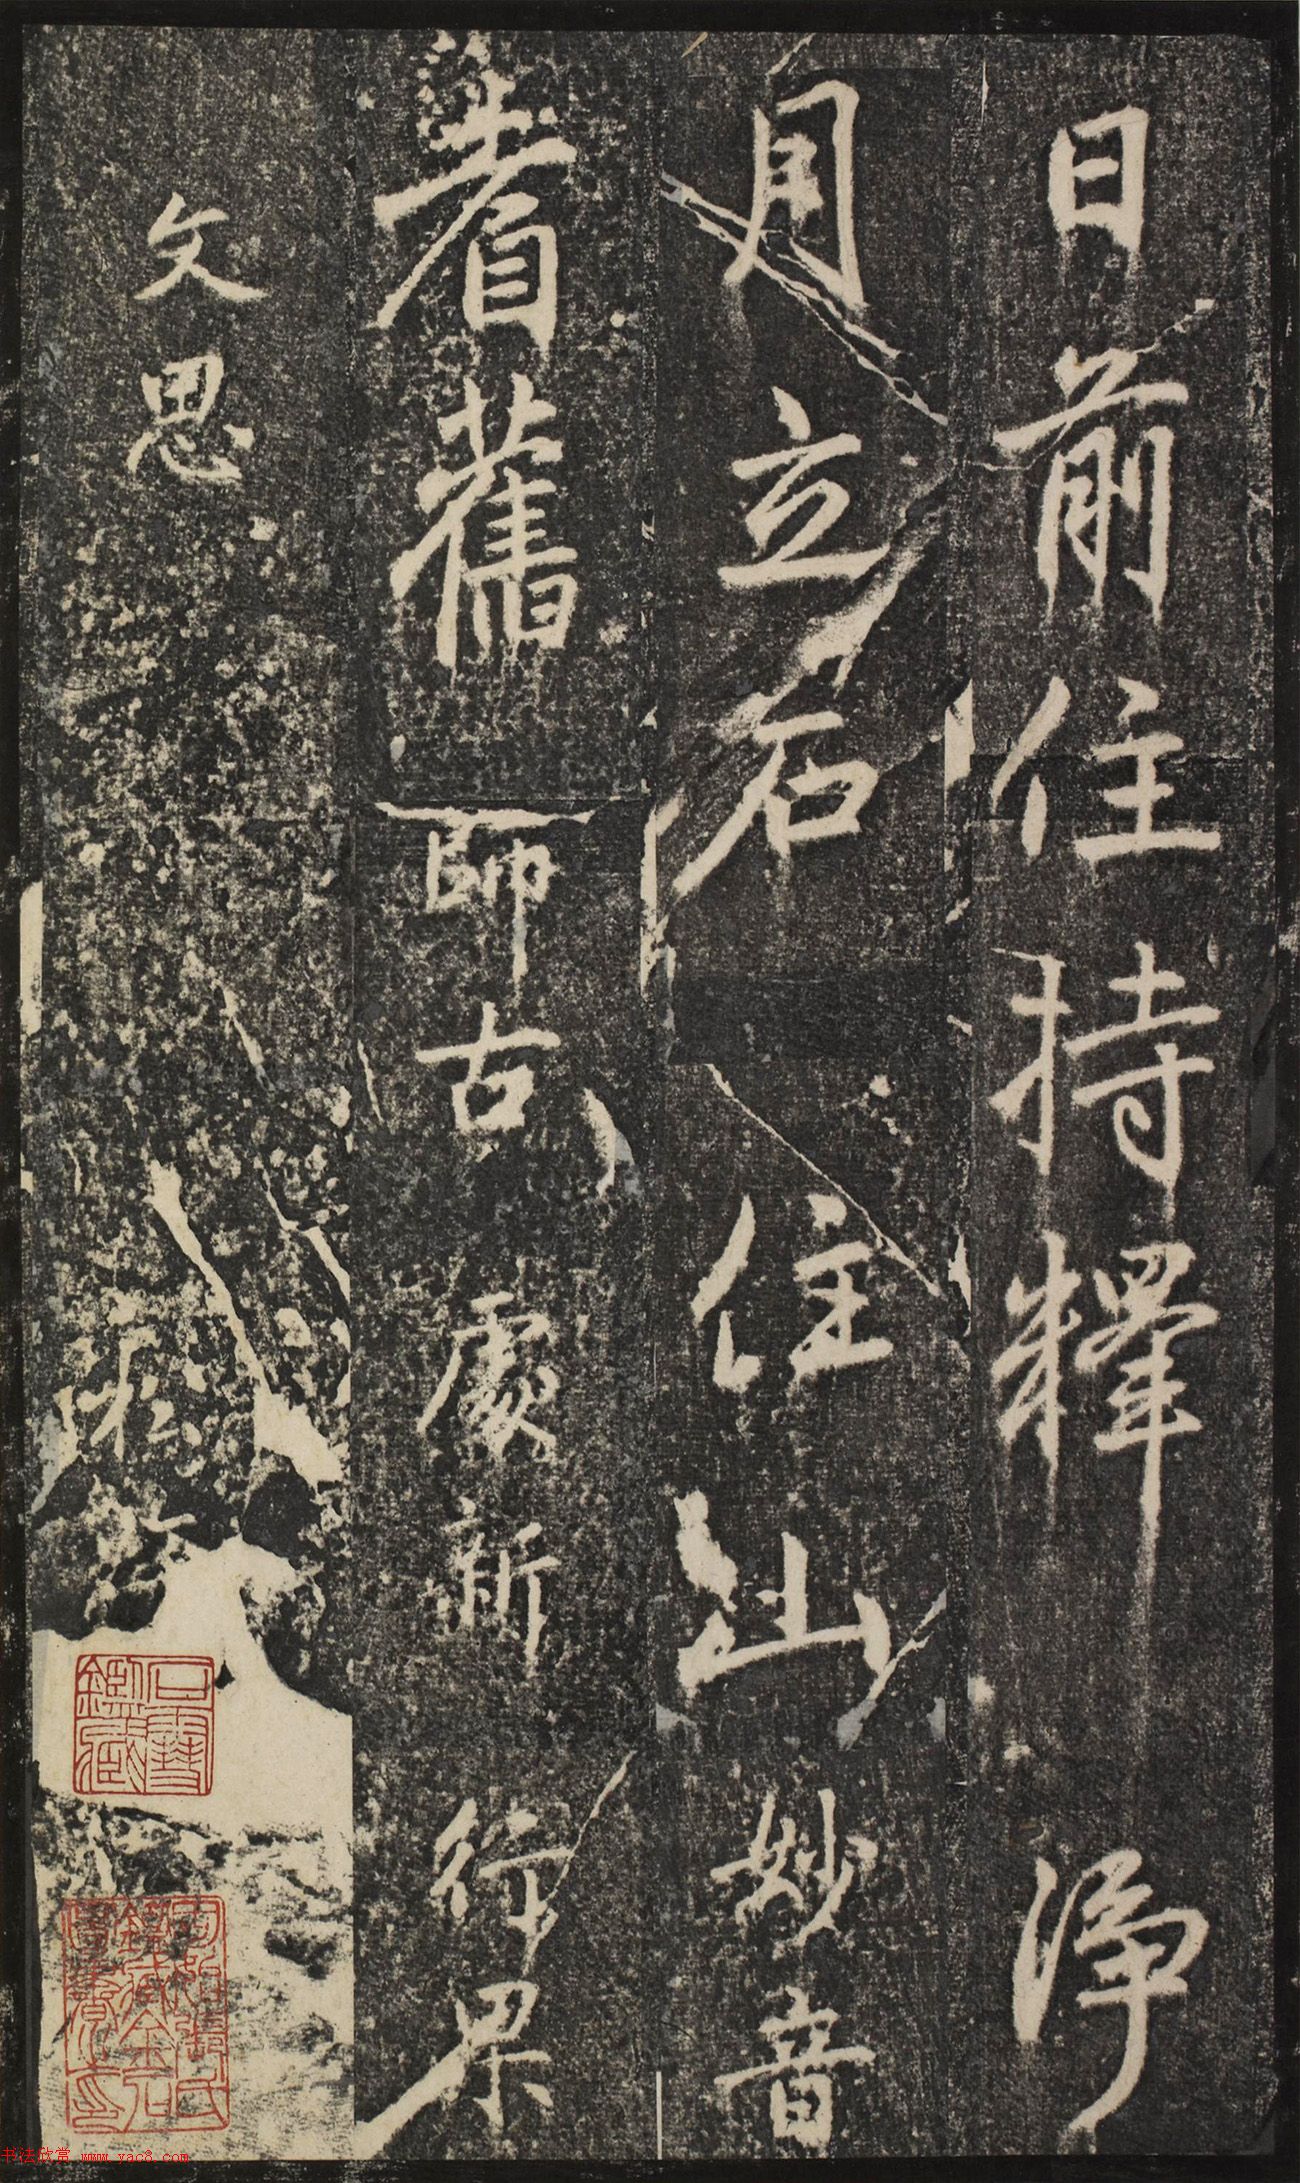 日前住持釋淨
月立石住山妙音
耆舊師古處新行果
文思
書法欣賞 www.yac8.com